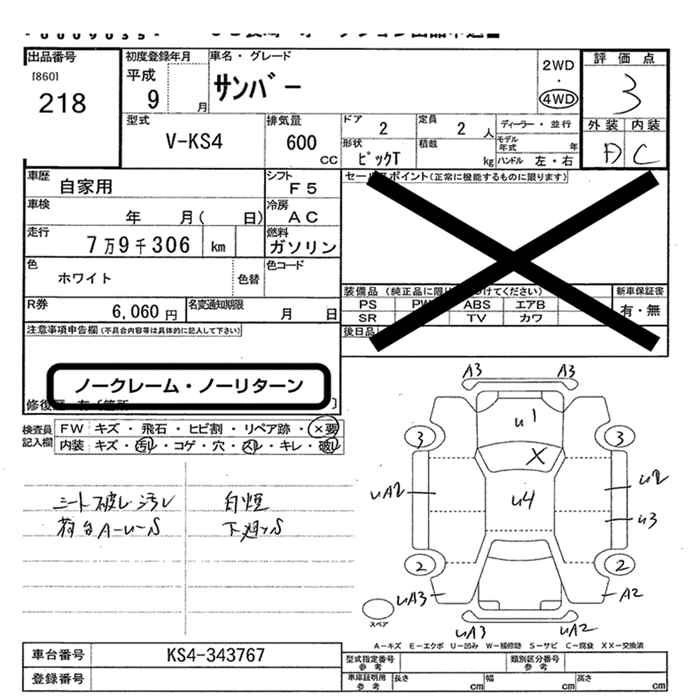 出品番号
[860]
218
初度登録年月
平成
9 月
車名・グレード
サンバー
2WD
・
4WD
評価点
3
外装 内装
D C
型式
V-KS4
排気量
600 CC
ドア
2
定員
2 人
ディーラー・並行
形状
ピックT
積載
kg
モデル年式 年
ハンドル 左・右
車歴
自家用
シフト
F5
セールスポイント(正常に機能するものに限ります)
車検
年 月( 日)
冷房
AC
走行
7万9千306 km
燃料
ガソリン
色
ホワイト
色替
色コード
装備品
PS PW ABS エアB
SR TV カワ
新車保証書
有・無
R券
6,060 円
名変通知期限
月 日
後日品
注意事項申告欄(不具合内容等は具体的に記入して下さい)
ノークレーム・ノーリターン
検査員記入欄
FW キズ・飛石・ヒビ割・リペア跡・×要
内装 キズ・汚レ・コゲ・穴・スレ・キレ・破レ
シート破レ汚レ 白煙
荷台A-U-S 下廻りS
A3 A3
U1
3 3
X
UA2 U4 U2
U3
2 2
UA3 A2
スペア
UA3 UA2
A-キズ E-エクボ U-凹み W-補修跡 S-サビ C-腐食 XX-交換済
車台番号
KS4-343767
登録番号
型式指定番号 参考
類別区分番号 参考
車庫証明用 参考
長さ cm 幅 cm 高さ cm